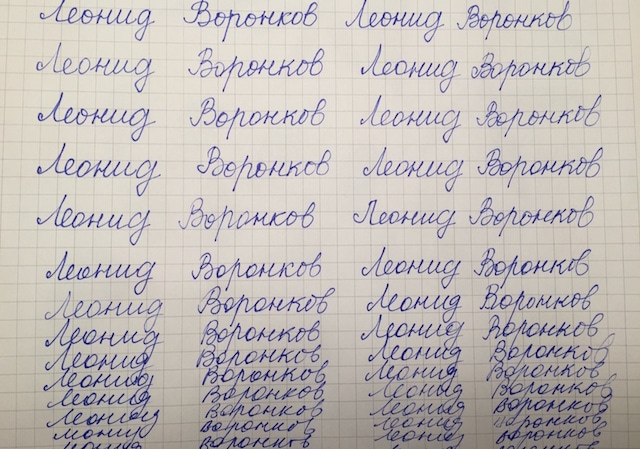 Леонид Воронков Леонид Воронков
Леонид Воронков Леонид Воронков
Леонид Воронков Леонид Воронков
Леонид Воронков Леонид Воронков
Леонид Воронков Леонид Воронков
Леонид Воронков Леонид Воронков
Леонид Воронков Леонид Воронков
Леонид Воронков Леонид Воронков
Леонид Воронков Леонид Воронков
Леонид Воронков Леонид Воронков
Леонид Воронков Леонид Воронков
Леонид Воронков Леонид Воронков
Воронков Леонид Воронков
Воронков Леонид Воронков